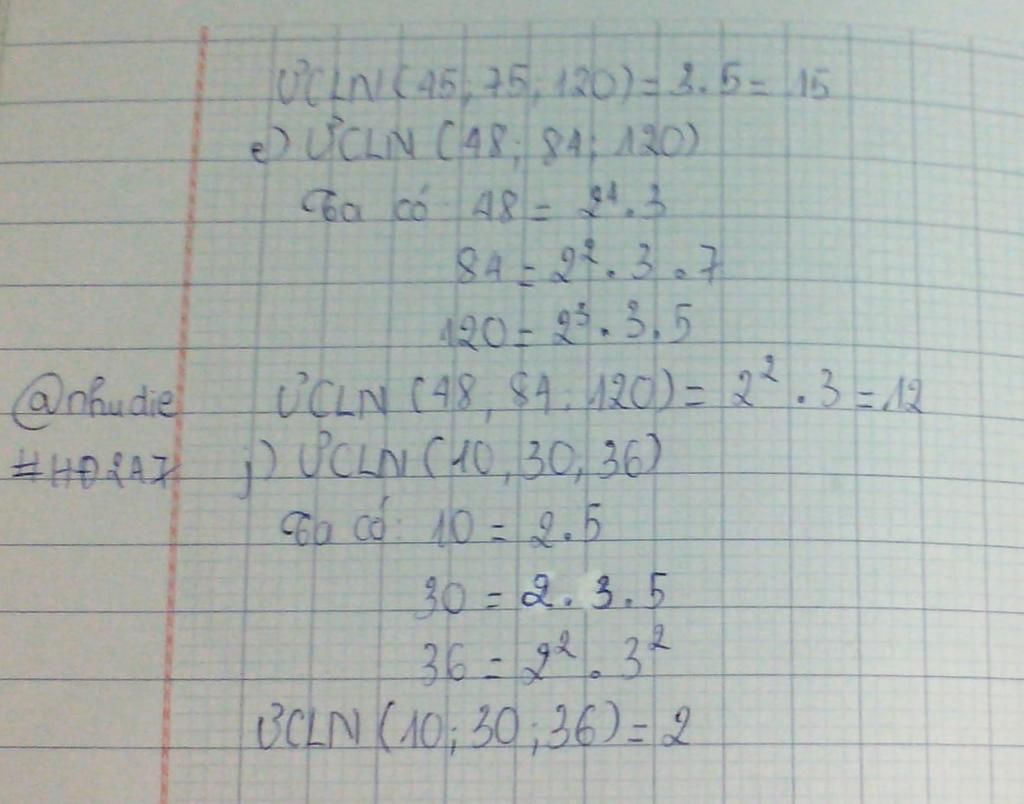 ƯCLN (45, 75, 120) = 3.5 = 15
e) ƯCLN (48; 84; 120)
Ta có 48 = 2⁴.3
84 = 2².3.7
120 = 2³.3.5
@nhudie ƯCLN (48, 84, 120) = 2².3 = 12
#HĐ2A7 j) ƯCLN (10, 30, 36)
Ta có: 10 = 2.5
30 = 2.3.5
36 = 2².3²
ƯCLN (10; 30; 36) = 2